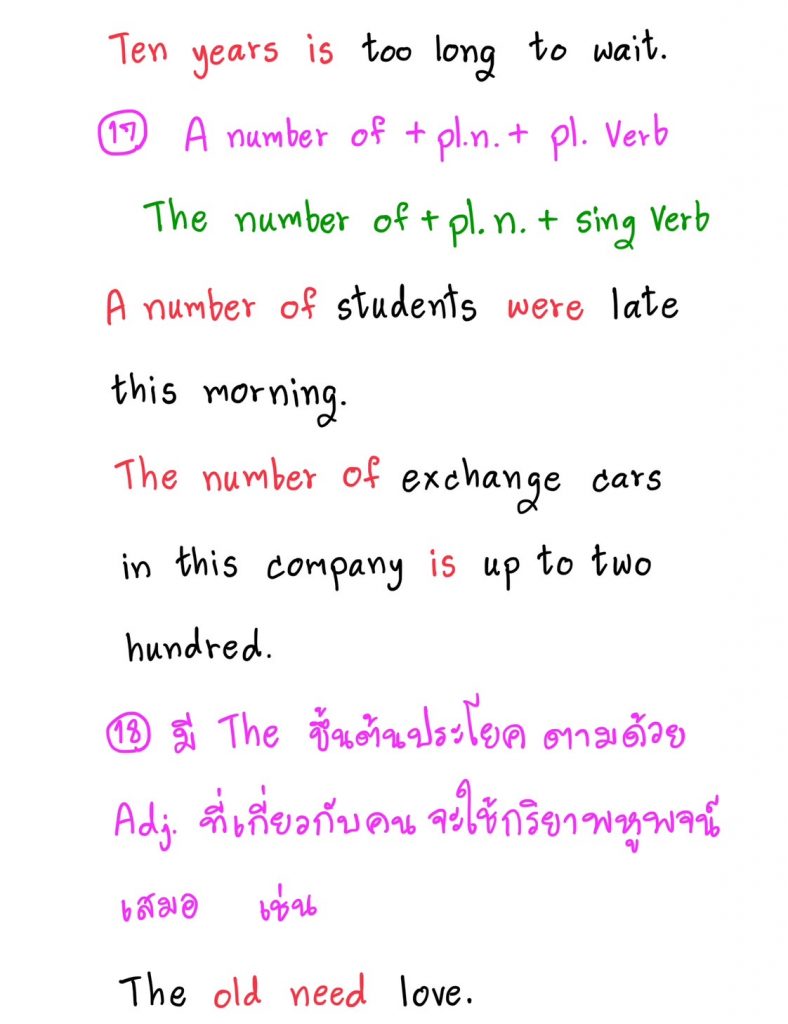 Ten years is too long to wait.
17 A number of + pl.n. + pl. Verb
The number of + pl. n. + sing Verb
A number of students were late
this morning.
The number of exchange cars
in this company is up to two
hundred.
18 มี The ขึ้นต้นประโยค ตามด้วย
Adj. ที่เกี่ยวกับคน จะใช้กริยาพหูพจน์
เสมอ เช่น
The old need love.